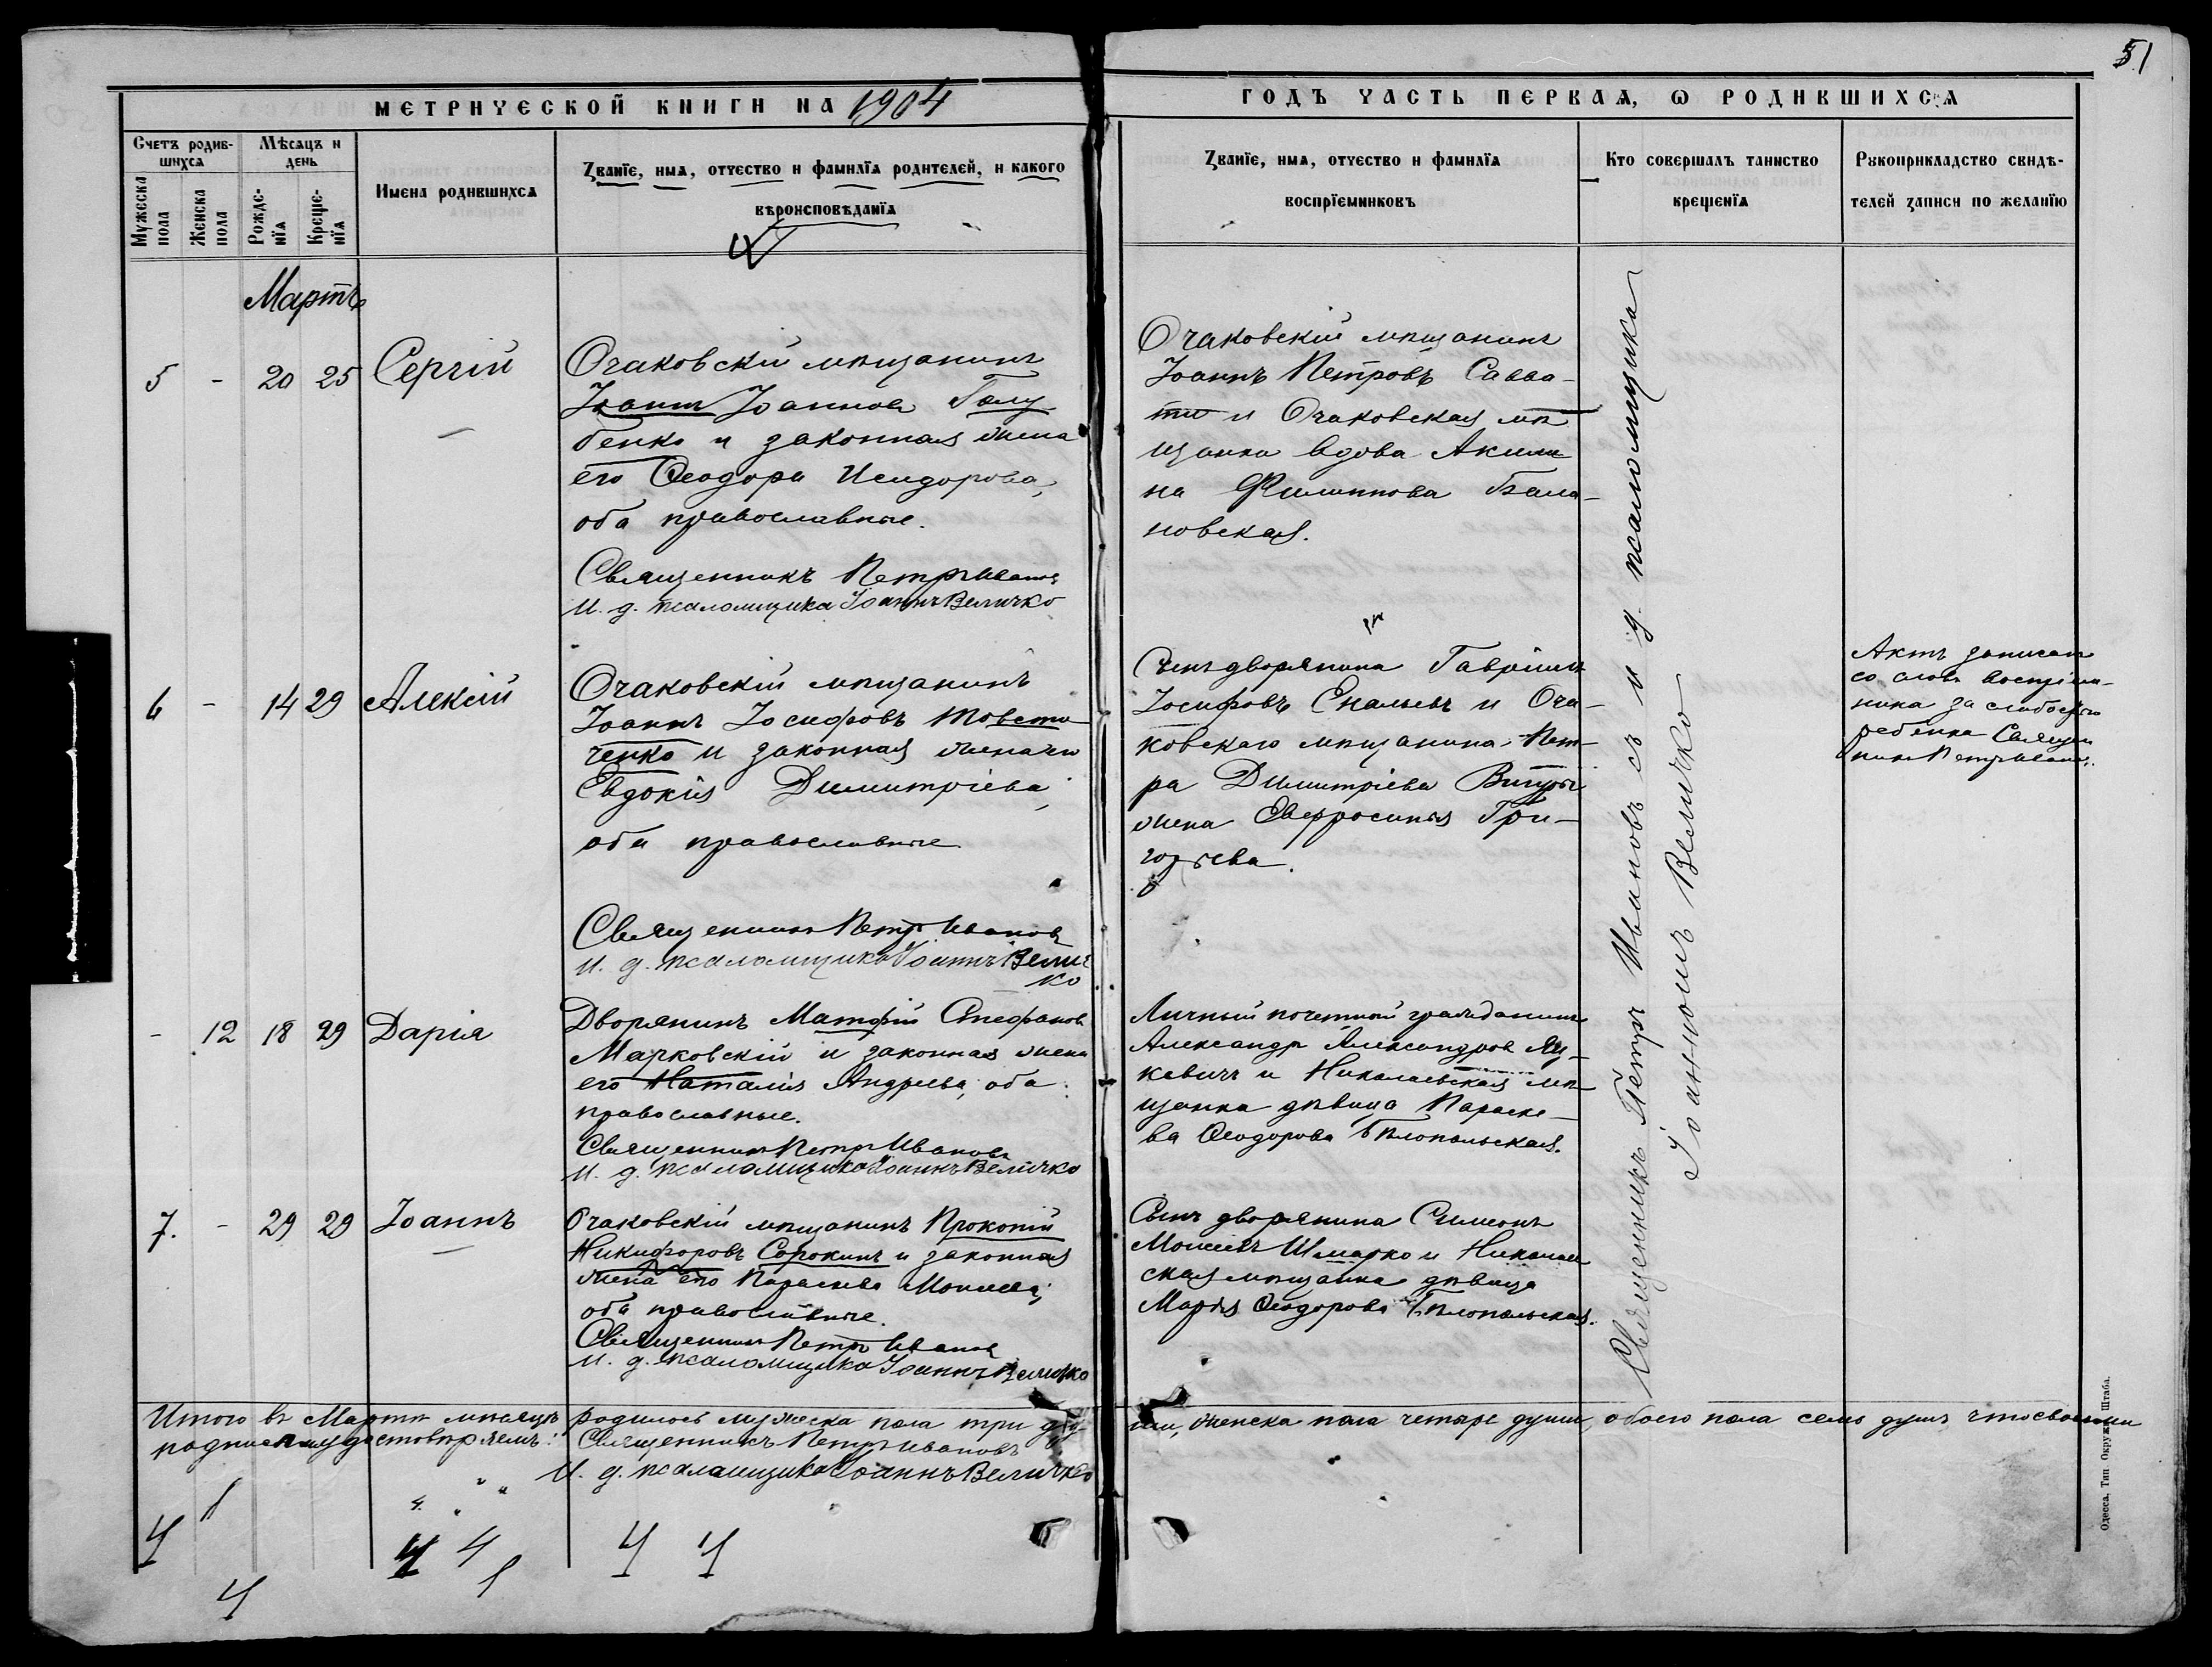 51
МЕТРИЧЕСКОЙ КНИГИ НА 1904
ГОДЪ ЧАСТЬ ПЕРВАЯ, Ѡ РОДИВШИХСЯ
Счетъ родив-
шихся
Мужеска
пола
Женска
пола
Мѣсяцъ и
день
Рожде-
нїя
Креще-
нїя
Имена родившихся
Званїе, имя, отчество и фамилїя родителей, и какого
вѣроисповѣданїя
Званїе, имя, отчество и фамилїя
воспрїемниковъ
Кто совершалъ таинство
крещенїя
Рукоприкладство свидѣ-
телей записи по желанїю
Мартъ
5 - 20 25 Сергій
Очаковскій мѣщанинъ
Іоаннъ Іоанновъ Голу
бенко и законная жена
его Ѳеодора Исидорова,
оба православные.
Священникъ Петръ Ивановъ
И. д. псаломщика Іоаннъ Величко
Очаковскій мѣщанинъ
Іоаннъ Петровъ Савва-
ти и Очаковская мѣ
щанка вдова Акили
на Филиппова Бала-
новская.
6 - 14 29 Алексій
Очаковскій мѣщанинъ
Іоаннъ Іосифовъ Товсти
ченко и законная жена его
Евдокія Димитріева,
оба православные
Священникъ Петръ Ивановъ
И. д. псаломщика Іоаннъ Велич
ко
Сынъ дворянина Гавріилъ
Іосифовъ и Оча-
ковскаго мѣщанина Пет-
ра Димитріева
жена Евфросинія Гри-
горьева.
Актъ записанъ
со словъ воспріем-
ника за слабостью
ребенка Священ
никъ Петръ Ивановъ.
- 12 18 29 Дарія
Дворянинъ Матфій Стефановъ
Марковскій и законная жена
его Наталія Андреева, оба
православные.
Священникъ Петръ Ивановъ
И. д. псаломщика Іоаннъ Величко
Личный почетный гражданинъ
Александръ Александровъ Яц-
кевичъ и Николаевская мѣ
щанка дѣвица Параске-
ва Ѳеодорова Бѣлопольская.
7. - 29 29 Іоаннъ
Очаковскій мѣщанинъ Прокопій
Никифоровъ Сорокинъ и законная
жена его Параскева Моисеева,
оба православные.
Священникъ Петръ Ивановъ
И. д. псаломщика Іоаннъ Величко
Сынъ дворянина Симеонъ
Моисеевъ Шмарко и Николаев
ская мѣщанка дѣвица
Марія Ѳеодорова Бѣлопольская.
Священникъ Петръ Ивановъ съ и д. псаломщика
Іоанномъ Величко
Итого въ Мартѣ мѣсяцѣ родилось мужеска пола три ду-
ши, женска пола четыре души, обоего пола семь душъ что своими
подписями удостовѣряемъ:
Священникъ Петръ Ивановъ
И. д. псаломщика Іоаннъ Величко
Одесса. Тип. Окружн. Штаба.